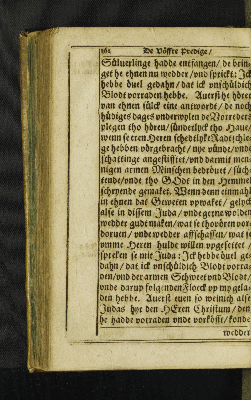 162 De Vöffte Predige/
Sülverlinge hadde entfangen/ de brin-
get he ehnen nu wedder/ vnd spricht: Jck
hebbe övel gedahn/ dat ick vnschüldich
Blodt vorraden hebbe. Averst he höret
van ehnen sülck eine antwordt/ de noch
hüdiges dages underwylen de Vorreders
plegen tho hören/ sünderlyck tho Have/
wenn se eren Heren schedtlyke Radtschle-
ge hebben vörgebracht/ nye vünde/ vnde
schattinge angestifftet/ vnd darmit men-
nigen armen Minschen bedrövet/ süch-
tende/ vnde tho GOdt in den Hemmel
schryende gemaket. Wenn denn einmahl
in ehnen dat Geweten vpwaket/ gelyck
alse in dissem Juda/ vnde gerne wolden
wedder gudt maken/ wat se thovörn vor-
dorven/ vnde wedder affschaffen/ wat se
vmme Heren hulde willen vpgesettet/
spreken se mit Juda: Jck hebbe övel ge-
dahn/ dat ick vnschüldich Blodt vorra-
den/ vnd der armen Schweet vnd Blodt/
vnde darup folgenden Flock vp my gela-
den hebbe. Averst even so weinich alse
Judas hyr den HEren Christum/ den
he hadde vorraden vnde vorköfft/ konde
wedder